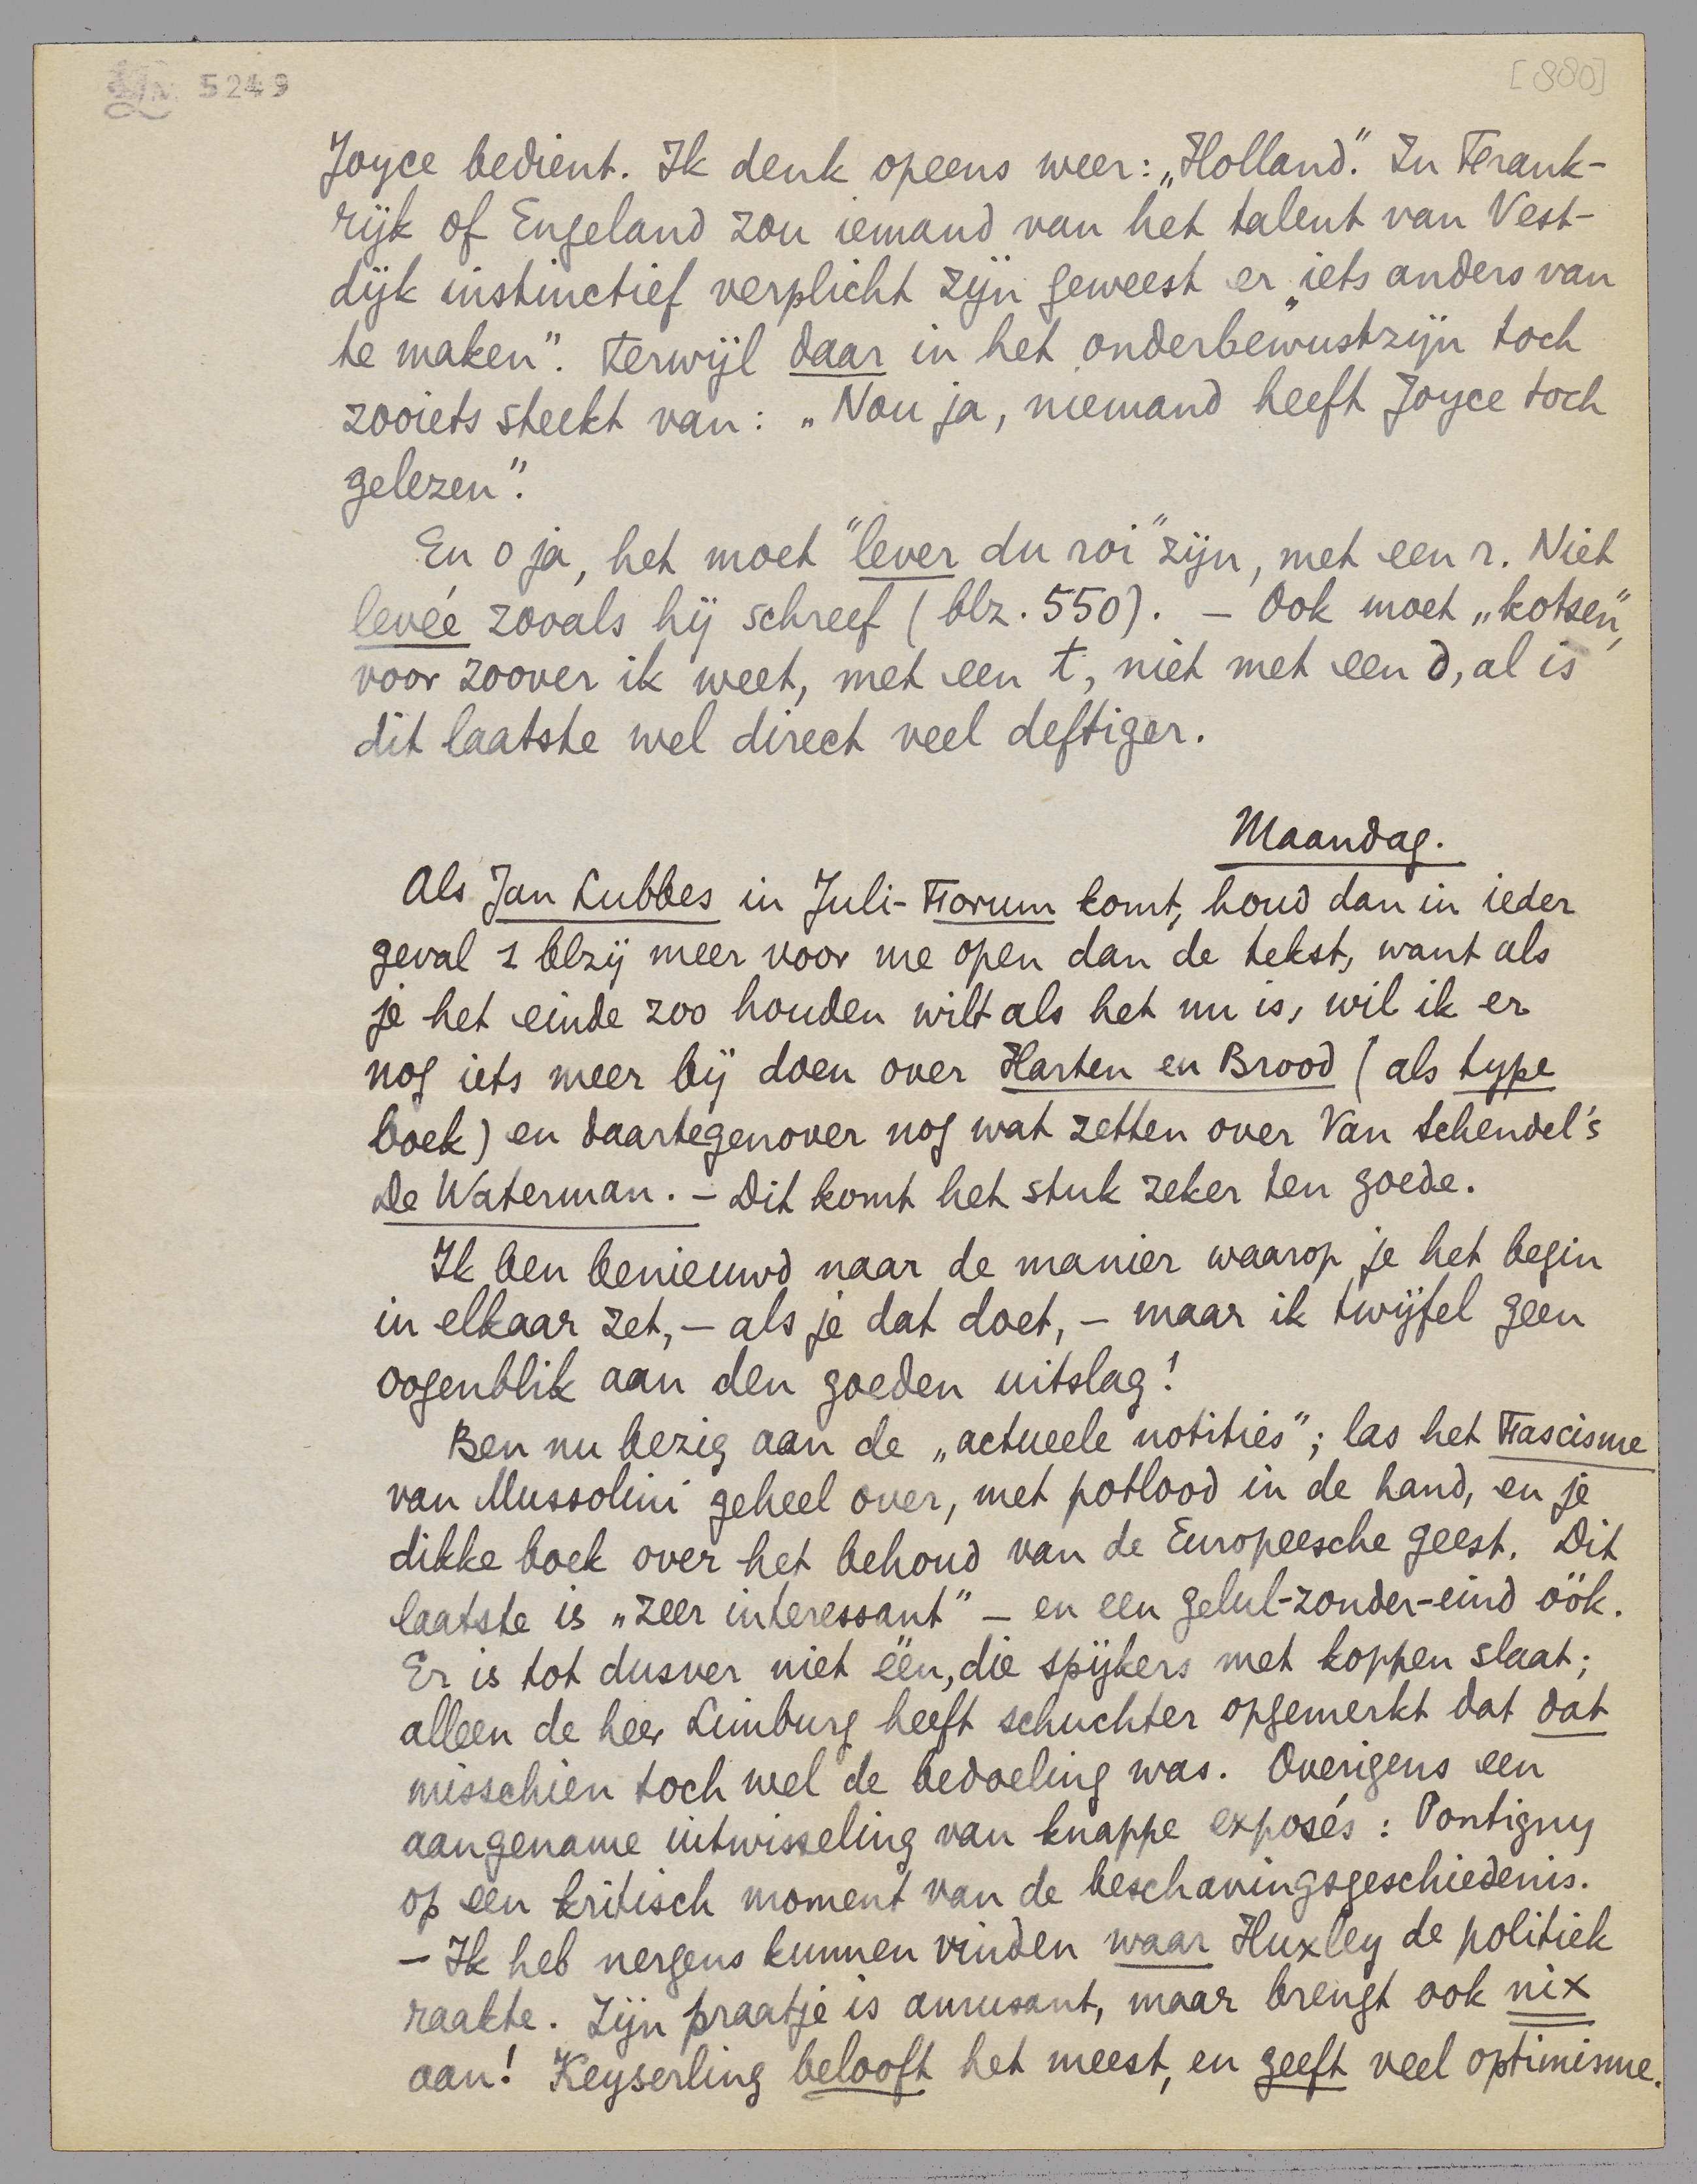 5249
[880]
Joyce bedient. Ik denk opeens weer: „Holland". In Frank-
rijk of Engeland zou iemand van het talent van Vest-
dijk instinctief verplicht zijn geweest er „iets anders van
te maken". Terwijl daar in het onderbewustzijn toch
zooiets steekt van: „Nou ja, niemand heeft Joyce toch
gelezen".
En o ja, het moet "lever du roi" zijn, met een r. Niet
levée zooals hij schreef (blz. 550). – Ook moet „kotsen",
voor zoover ik weet, met een t, niet met een d, al is
dit laatste wel direct veel deftiger.
Maandag.
Als Jan Lubbes in Juli-Forum komt, houd dan in ieder
geval 1 blzij meer voor me open dan de tekst, want als
je het einde zoo houden wilt als het nu is, wil ik er
nog iets meer bij doen over Harten en Brood (als type
boek) en daartegenover nog wat zetten over Van Schendel's
De Waterman. – Dit komt het stuk zeker ten goede.
Ik ben benieuwd naar de manier waarop je het begin
in elkaar zet, – als je dat doet, – maar ik twijfel geen
oogenblik aan den goeden uitslag!
Ben nu bezig aan de „actueele notities"; las het Fascisme
van Mussolini geheel over, met potlood in de hand, en je
dikke boek over het behoud van de Europeesche geest. Dit
laatste is „zeer interessant" – en een gelul-zonder-eind óók.
Er is tot dusver niet één, die spijkers met koppen slaat;
alleen de heer Limburg heeft schuchter opgemerkt dat dat
misschien toch wel de bedoeling was. Overigens een
aangename uitwisseling van knappe exposés: Pontigny
op een kritisch moment van de beschavingsgeschiedenis.
– Ik heb nergens kunnen vinden waar Huxley de politiek
raakte. Zijn praatje is amusant, maar brengt ook nix
aan! Keyserling belooft het meest, en geeft veel optimisme.